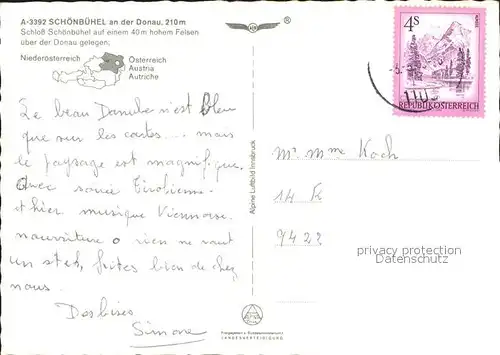 A-3392 SCHÖNBÜHEL an der Donau, 210m
Schloß Schönbühel auf einem 40 m hohem Felsen
über der Donau gelegen;
Niederösterreich
Österreich
Austria
Autriche
Le beau Danube n'est bleu
que sur les cartes... mais
le paysage est magnifique.
Avec soirée Tirolienne
et hier musique Viennoise.
nourriture o rien ne vaut
un stek frites bien de chez
nous.
Des bises
Simone
Alpine Luftbild Innsbruck
Freigegeben v. Bundesministerium f.
LANDESVERTEIDIGUNG
4s
REPUBLIK ÖSTERREICH
Mr Mme Koch
14
942
privacy protection
Datenschutz